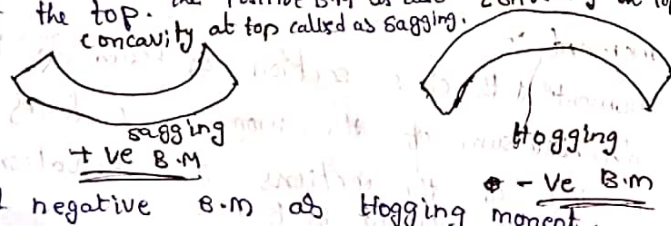 the top. the Positive B.M as
concavity at top called as sagging.
sagging
+ ve B.M
Hogging
- Ve B.m
negative B.M as Hogging moment.